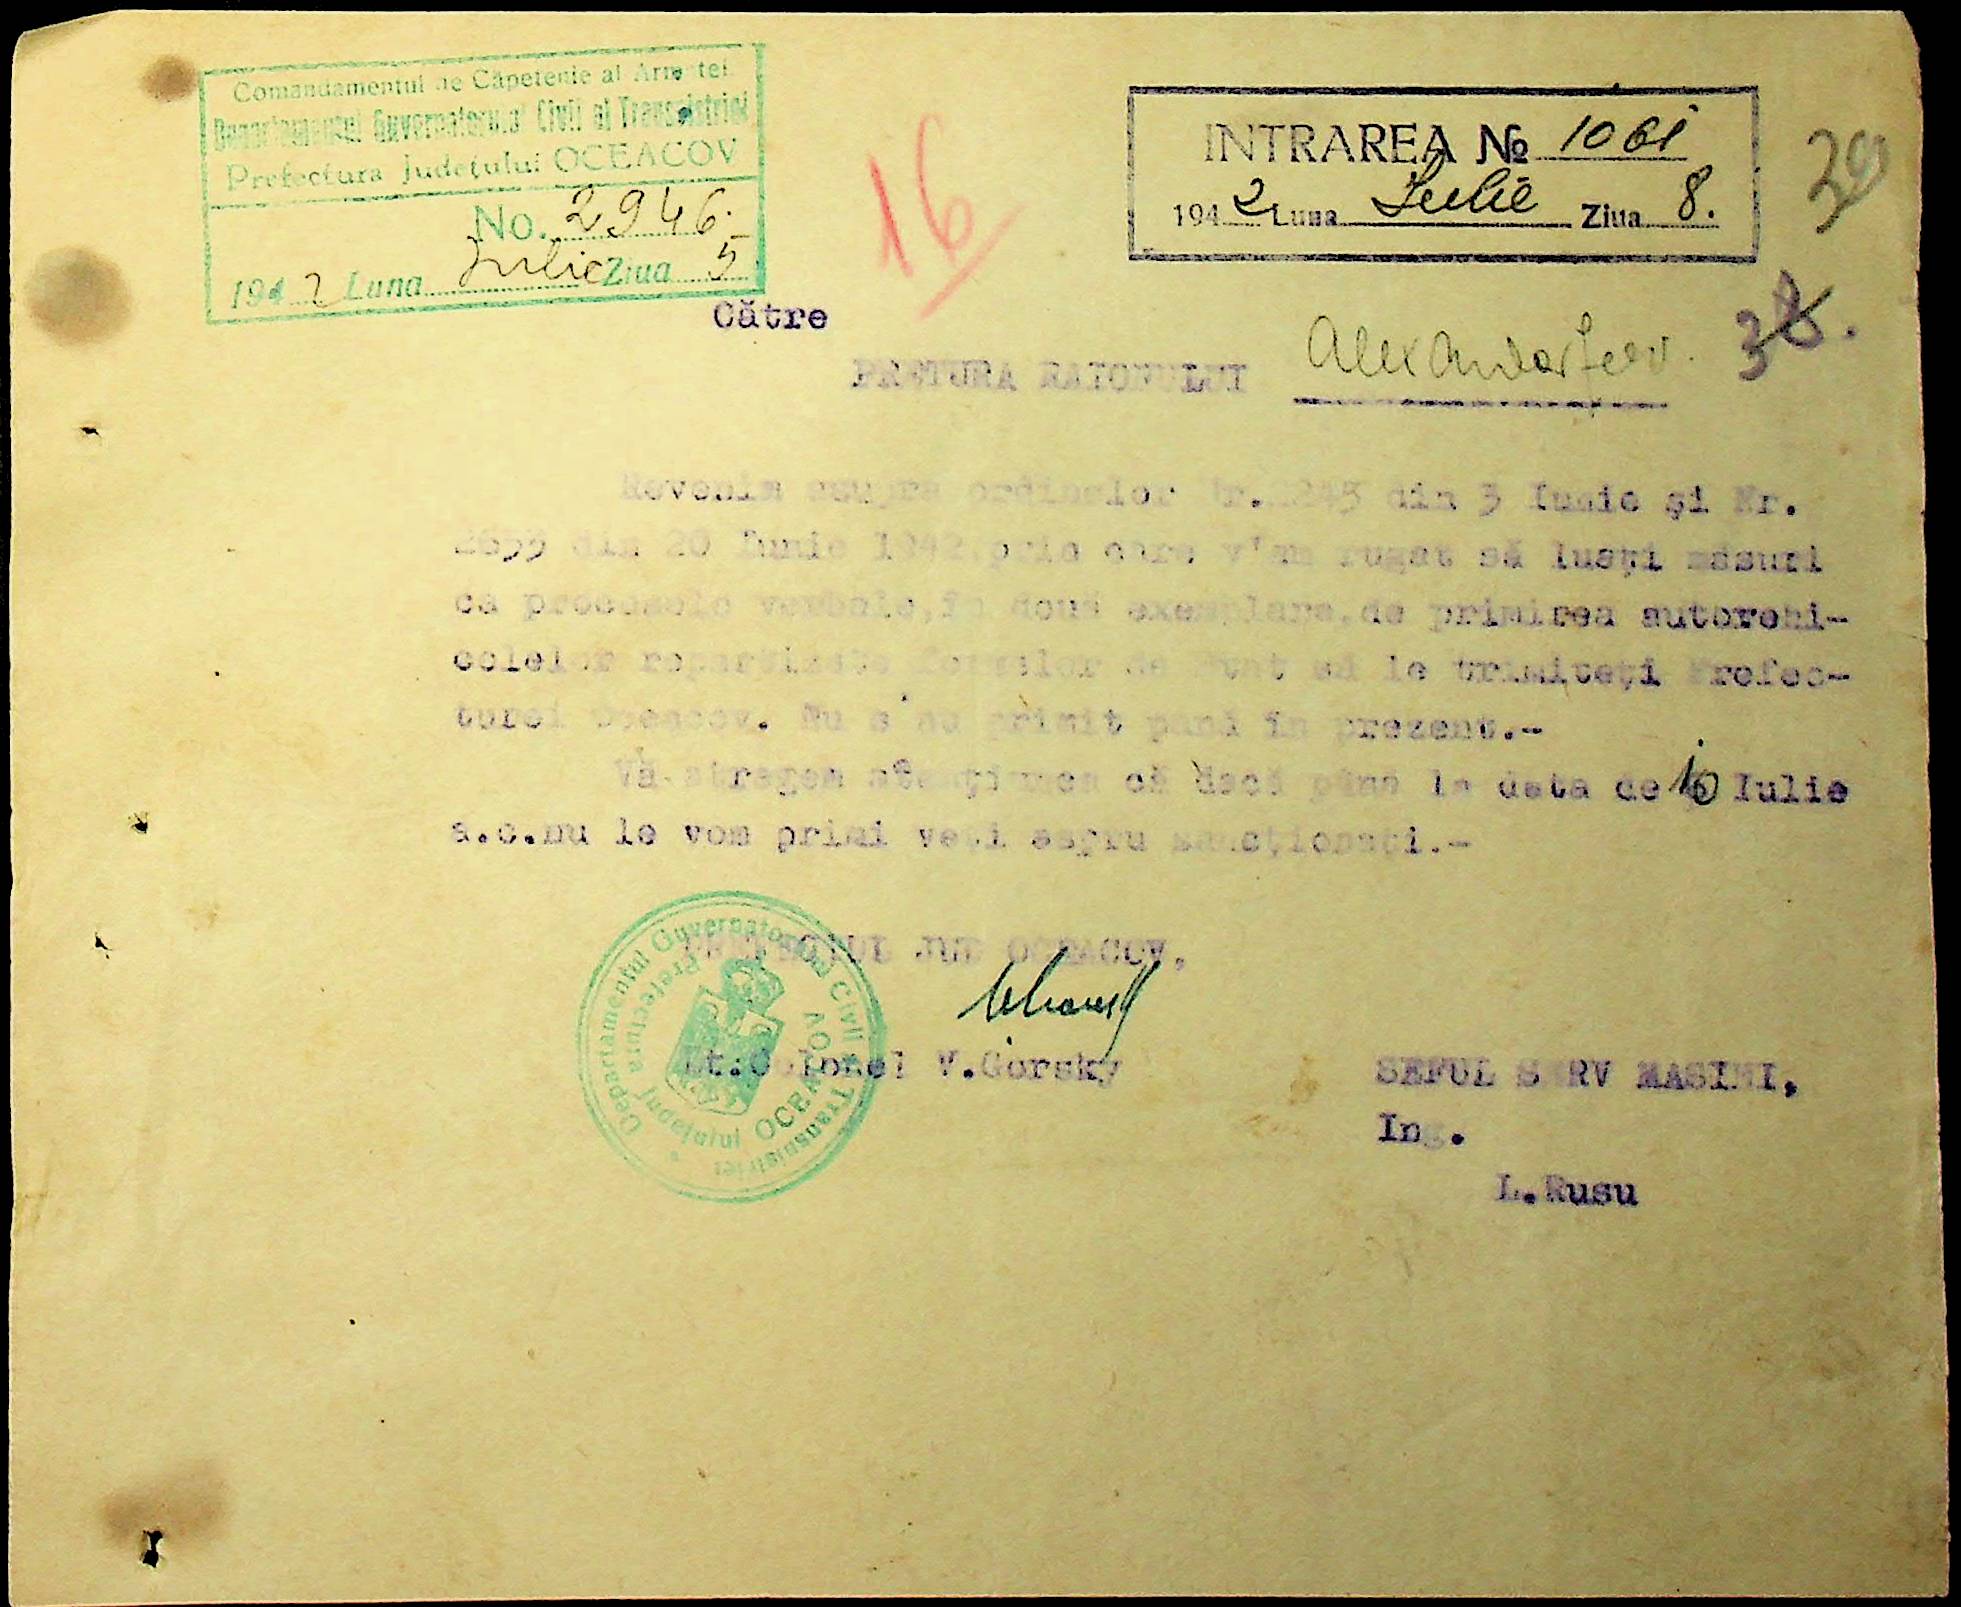 Comandamentul de Căpetenie al Armatei
Departamentul Guvernatorului Civil al Transnistriei
Prefectura județului OCEACOV
No. 2946.
1942 Luna Iulie Ziua 5
INTRAREA № 1061
1942 Luna Iulie Ziua 8.
16
30
38.
Către
PRETURA RAIONULUI Alexandarfeld.
Revenim asupra ordinelor Nr. din 3 Iunie și Nr.
2699 din 20 Iunie 1942 prin care v'am rugat să luați măsuri
ca procesele verbale, în două exemplare, de primirea autovehi-
colelor repartizate fermelor de stat să le trimiteți Prefec-
turei Oceacov. Nu s'au primit până în prezent.-
Vă atragem atențiunea că dacă până la data de 10 Iulie
a.c. nu le vom primi veți aspru sancționați.-
PREFECTUL JUD OCEACOV,
Lt.Colonel V.Gorsky
SEFUL SERV MASINI,
Ing.
L.Rusu
Departamentul Guvernatorului Civil al Transnistriei
Prefectura Județului OCEACOV